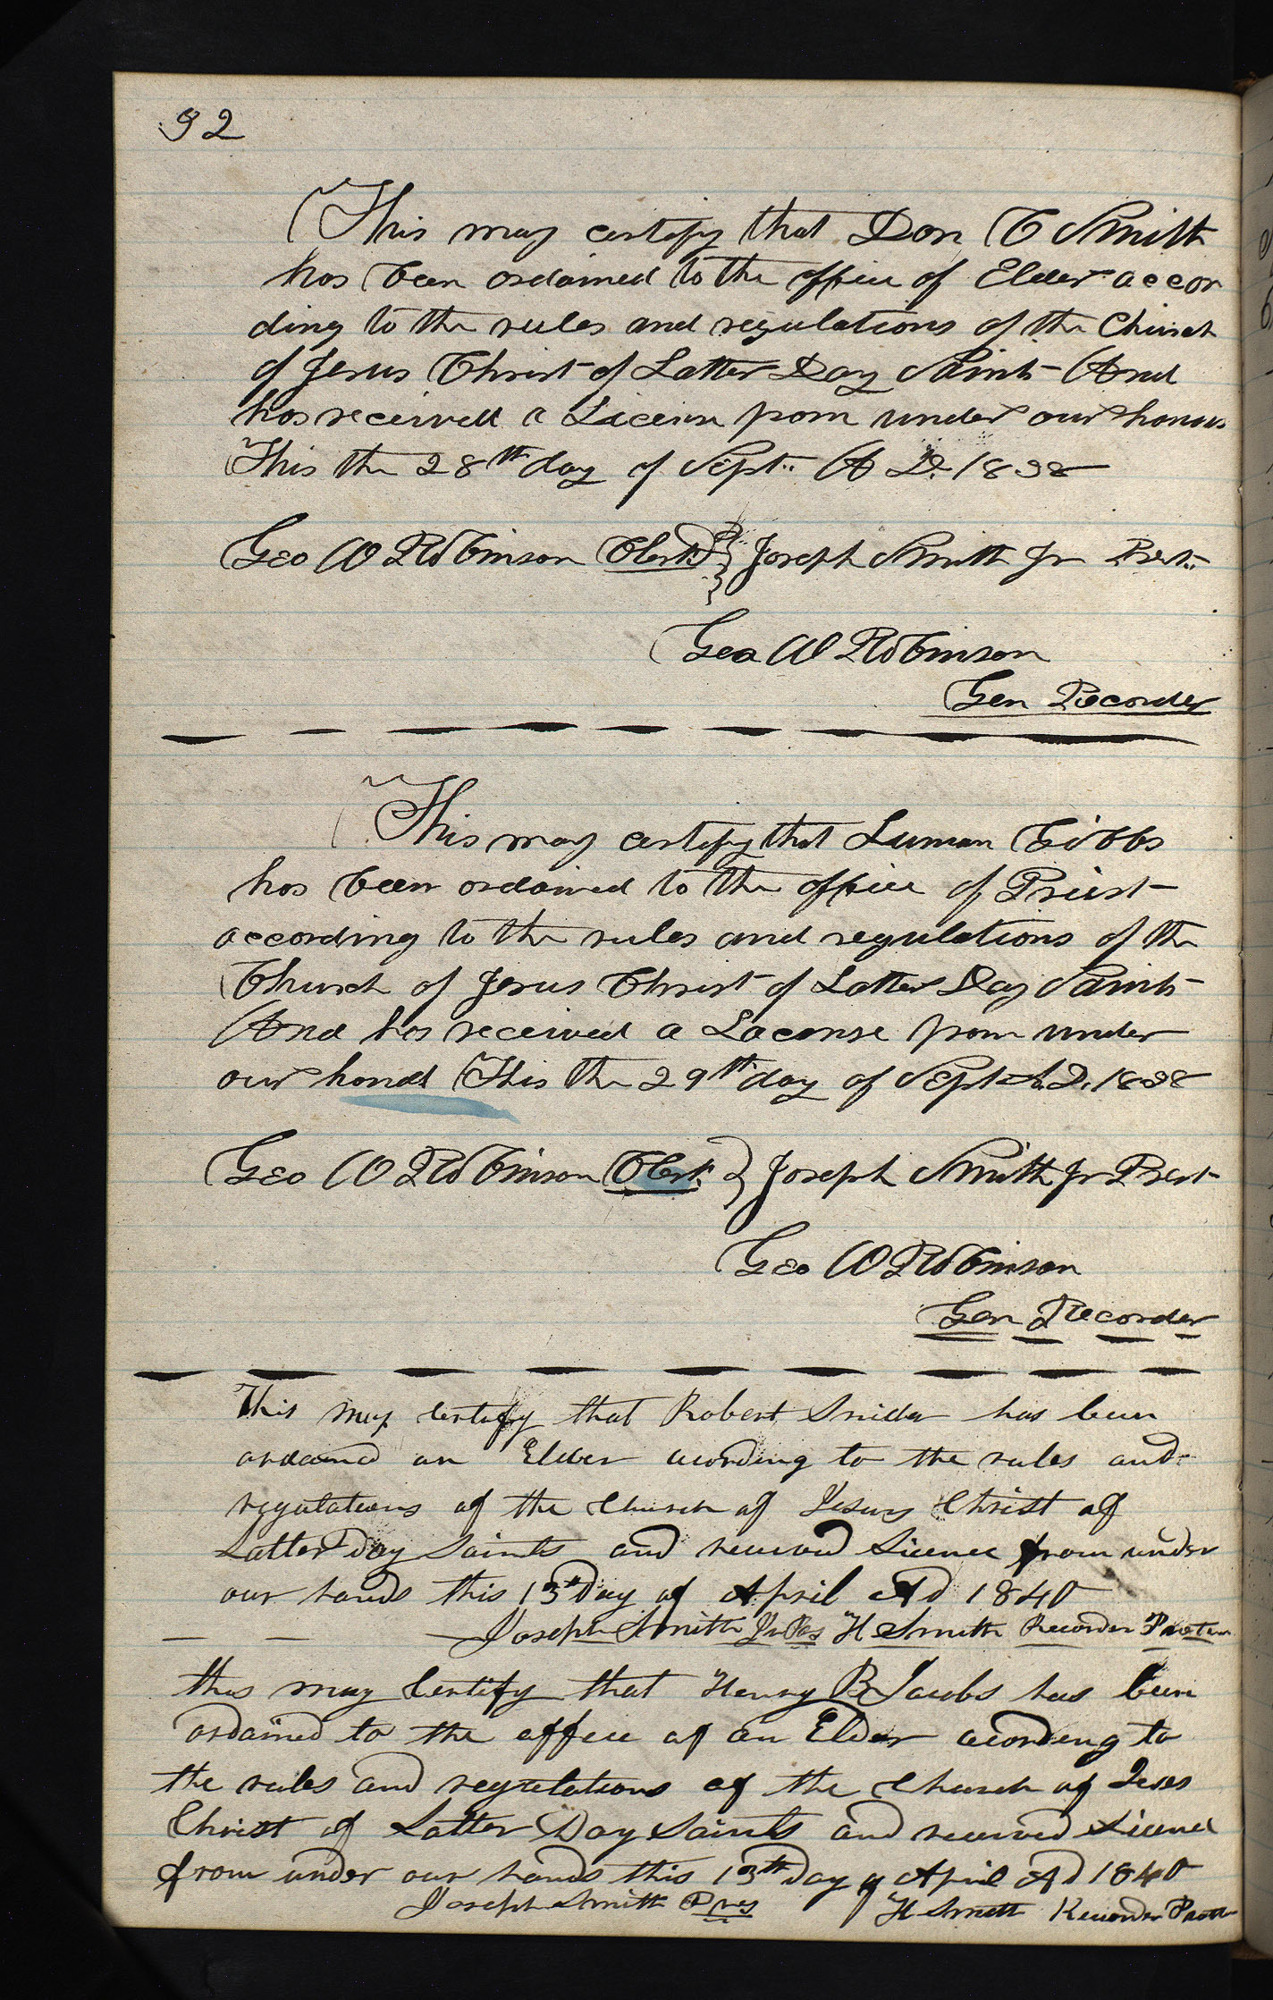 92
This may certify that Don C Smith
has been ordained to the office of Elder accor
ding to the rules and regulations of the Church
of Jesus Christ of Latter Day Saints And
has received a Licence from under our hands
This the 28th day of Sept. A D. 1838
Geo W Robinson Clerk } Joseph Smith Jr Prest.
Geo W Robinson
Gen Recorder
This may certify that Luman Gibbs
has been ordained to the office of Priest
according to the rules and regulations of the
Church of Jesus Christ of Latter Day Saints
And has received a Lacense from under
our hand This the 29th day of Sept A. D. 1838
Geo W Robinson Clerk. } Joseph Smith Jr Prest
Geo W Robinson
Gen Recorder
This may certify that Robert Snider has been
ordained an Elder acording to the rules and
regulations of the Church of Jesus Christ of
Latter Day Saints and received Licence from under
our hands this 13th Day of April AD 1840
Joseph Smith Jr Pres H Smith Recorder Protem
this may Certify that Henry B Jacobs has been
ordained to the office of an Elder acording to
the rules and regulations of the Church of Jesus
Christ of Latter Day Saints and received Licence
from under our hands this 13th Day of April AD 1840
Joseph Smith Pres H Smith Recorder Protem